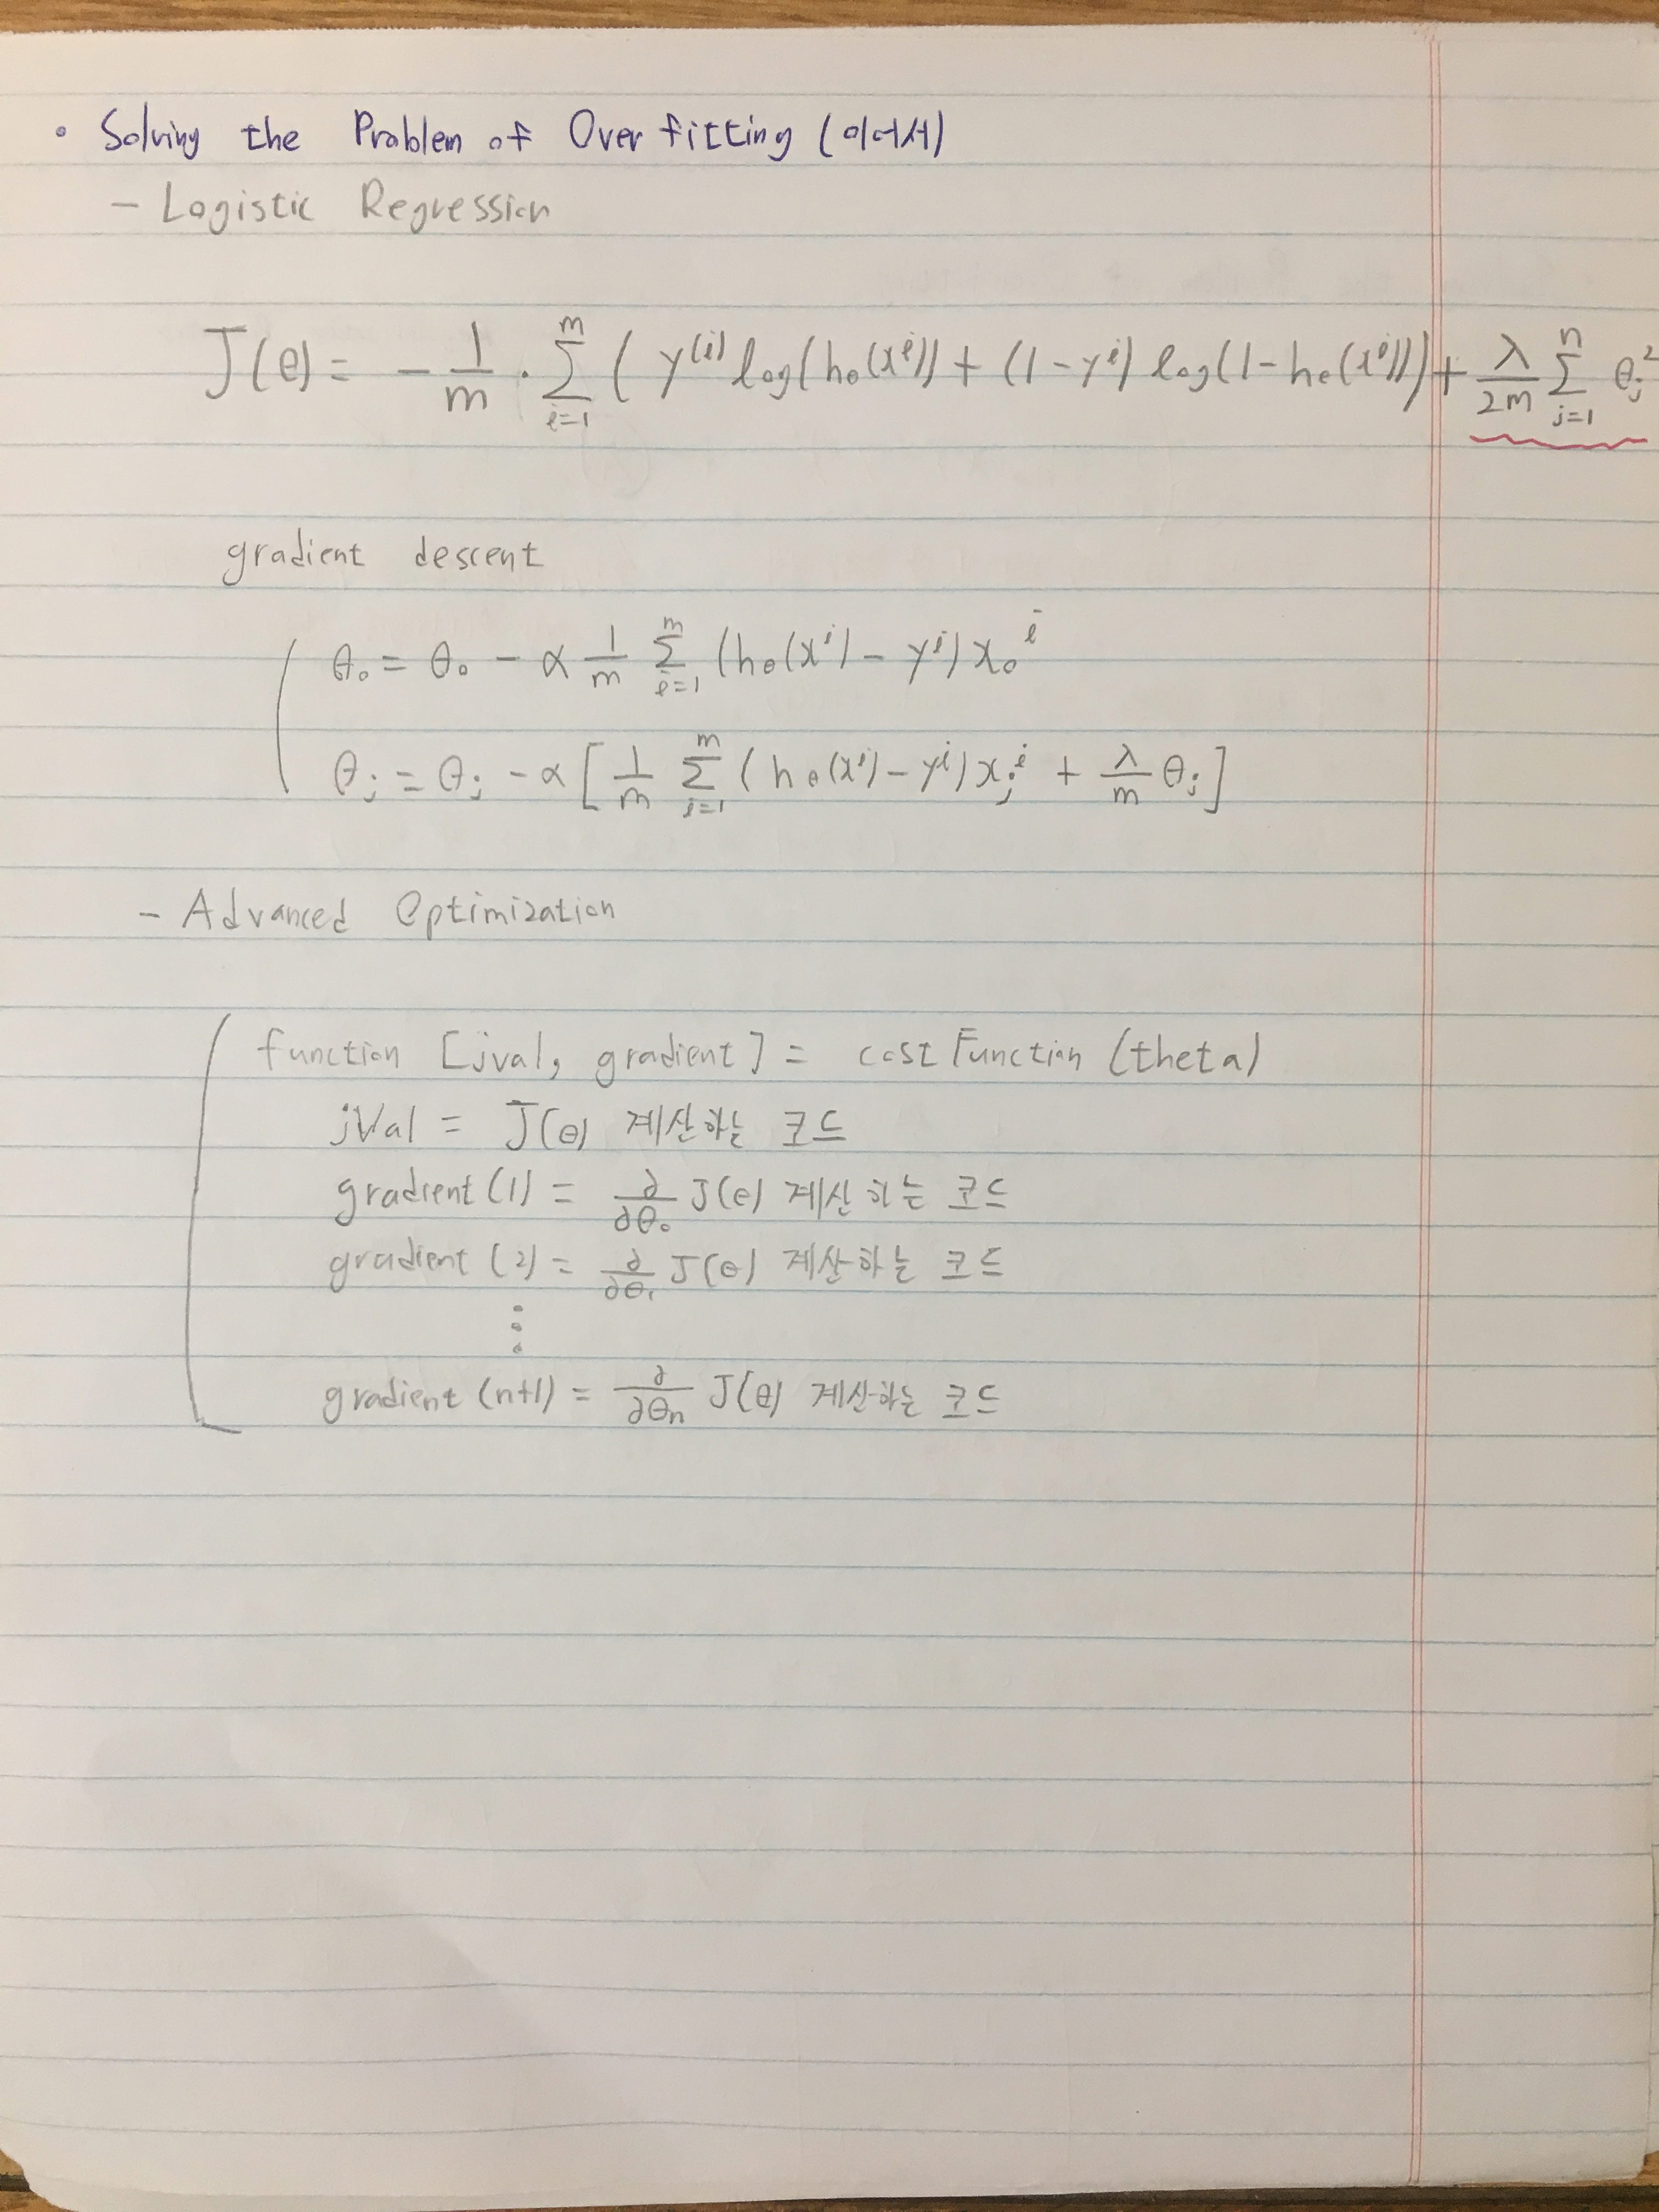 • Solving the Problem of Overfitting (이어서)
- Logistic Regression
J(θ) = - 1/m · Σ_{i=1}^{m} ( y^{(i)} log(h_θ(x^i)) + (1-y^i) log(1-h_θ(x^i))) + λ/2m Σ_{j=1}^{n} θ_j^2
gradient descent
θ_0 = θ_0 - α 1/m Σ_{i=1}^{m} (h_θ(x^i) - y^i) x_0^i
θ_j = θ_j - α [ 1/m Σ_{i=1}^{m} (h_θ(x^i) - y^i) x_j^i + λ/m θ_j ]
- Advanced Optimization
function [jval, gradient] = costFunction (theta)
jVal = J(θ) 계산하는 코드
gradient (1) = ∂/∂θ_0 J(θ) 계산하는 코드
gradient (2) = ∂/∂θ_1 J(θ) 계산하는 코드
⋮
gradient (n+1) = ∂/∂θ_n J(θ) 계산하는 코드